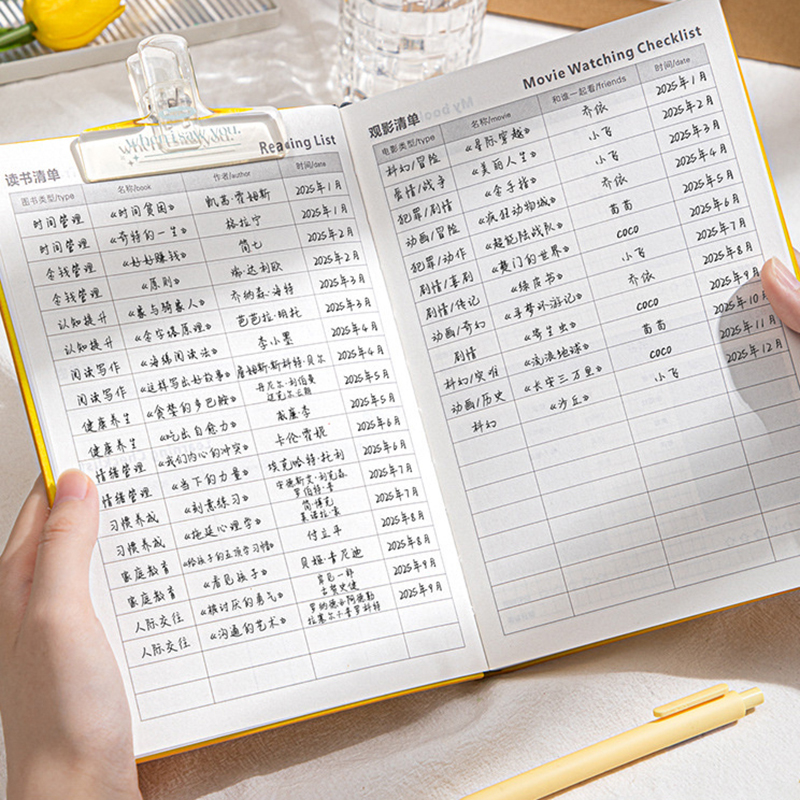 When I saw you.
Reading List
读书清单
图书类型/type 名称/book 作者/author 时间/date
时间管理 《时间贫困》 凯茜·霍姆斯 2025年1月
时间管理 《奇特的一生》 格拉宁 2025年1月
金钱管理 《好好赚钱》 简七 2025年2月
金钱管理 《原则》 瑞·达利欧 2025年2月
认知提升 《象与骑象人》 乔纳森·海特 2025年3月
认知提升 《金字塔原理》 芭芭拉·明托 2025年3月
阅读写作 《海绵阅读法》 李小墨 2025年4月
阅读写作 《这样写出好故事》 詹姆斯斯科特·贝尔 2025年4月
健康养生 《贪婪的多巴胺》 丹尼尔·利伯曼 2025年5月
健康养生 《吃出自愈力》 威廉·李 2025年5月
情绪管理 《我们内心的冲突》 卡伦·霍妮 2025年6月
情绪管理 《当下的力量》 埃克哈特·托利 2025年6月
习惯养成 《刻意练习》 安德斯·艾利克森 罗伯特·普 2025年7月
习惯养成 《拖延心理学》 简·博克 莱诺拉·袁 2025年7月
家庭教育 《给孩子的五项学习情》 付立平 2025年8月
家庭教育 《看见孩子》 贝姬·肯尼迪 2025年8月
人际交往 《被讨厌的勇气》 岸见一郎 古贺史健 2025年9月
人际交往 《沟通的艺术》 罗纳德·阿德勒 拉塞尔·普罗科特 2025年9月
Movie Watching Checklist
观影清单
电影类型/type 名称/movie 和谁一起看/friends 时间/date
科幻/冒险 《星际穿越》 乔依 2025年1月
爱情/战争 《美丽人生》 小飞 2025年2月
犯罪/剧情 《金手指》 小飞 2025年3月
动画/冒险 《疯狂动物城》 乔依 2025年4月
犯罪/动作 《超能陆战队》 苗苗 2025年5月
剧情/喜剧 《楚门的世界》 coco 2025年6月
剧情/传记 《绿皮书》 小飞 2025年7月
动画/奇幻 《寻梦环游记》 乔依 2025年8月
剧情 《寄生虫》 coco 2025年9月
科幻/灾难 《流浪地球》 苗苗 2025年10月
动画/历史 《长安三万里》 coco 2025年11月
科幻 《沙丘》 小飞 2025年12月